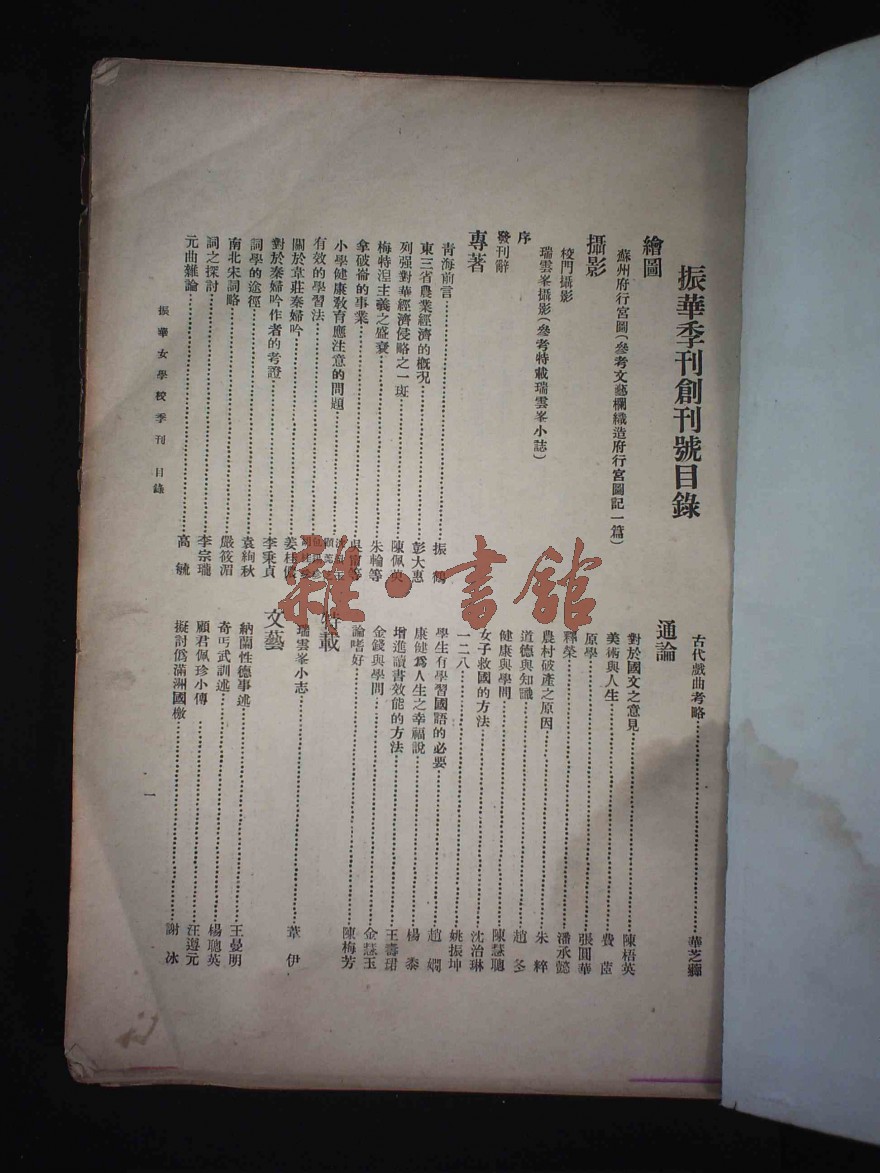 振華季刊創刊號目錄
繪圖
蘇州府行宮圖(參考文藝欄織造府行宮圖記一篇)
攝影
校門攝影
瑞雲峯攝影(參考特載瑞雲峯小誌)
序
發刊辭
專著
青海前言……振鶴
東三省農業經濟的槪况……彭大惠
列强對華經濟侵略之一斑……陳佩英
梅特涅主義之盛衰……朱輪等
拿破崙的事業……等
小學健康教育應注意的問題……
有效的學習法……
關於韋莊秦婦吟……姜桂
對於秦婦吟作者的考證……李秉貞
詞學的途徑……袁絢秋
南北宋詞略……嚴筱湄
詞之探討……李宗瓏
元曲雜論……高毓
古代戲曲考略……華芝
通論
對於國文之意見……陳梧英
美術與人生……費
原學……張圓華
釋榮……潘承懿
農村破產之原因……朱粹
道德與知識……趙冬
健康與學問……陳慧聰
女子救國的方法……沈治琳
一二八……姚振坤
學生有學習國語的必要……趙嫻
康健爲人生之幸福說……楊泰
增進讀書效能的方法……王壽珺
金錢與學問……金慧玉
論嗜好……陳梅芳
特載
瑞雲峯小志……葦伊
文藝
納蘭性德事述……王曼明
奇丐武訓述……楊聰英
顧君佩珍小傳……汪遵元
擬討僞滿洲國檄……謝冰
振華女學校季刊 目錄
一
雜·書館